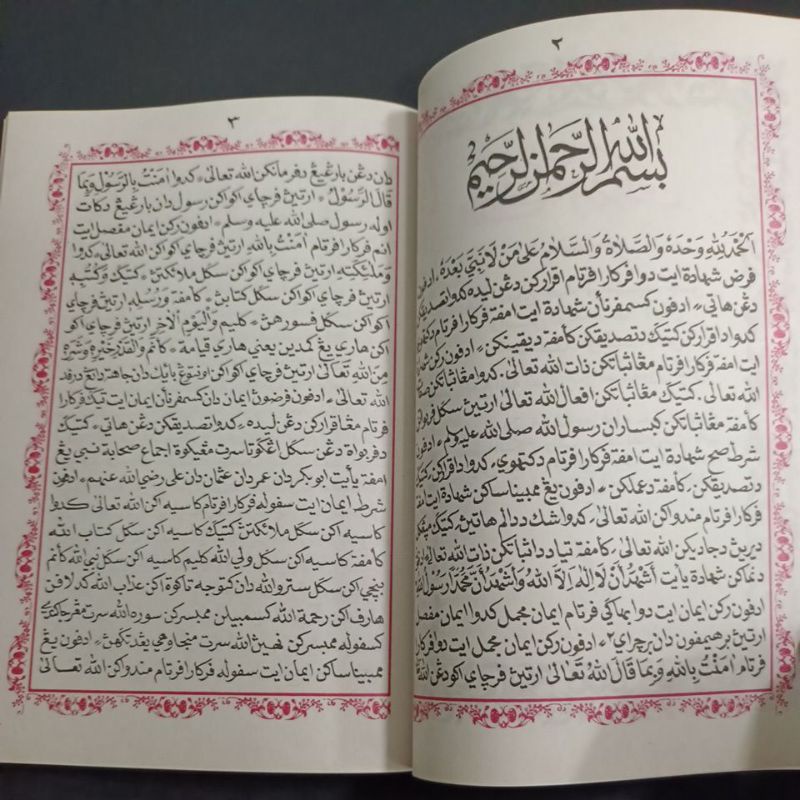 ٢
بسم الله الرحمن الرحيم
اَلْحَمْدُ لِلّٰهِ وَحْدَهُ وَالصَّلَاةُ وَالسَّلَامُ عَلَى مَنْ لَا نَبِيَّ بَعْدَهُ ، ادفون
فرض شهادة ايت دوا فركارا فرتام اقراركن دڠن ليده كدوا تصديقكن
دڠن هاتي ، ادفون كسمفرنأن شهادة ايت امفة فركارا فرتام دكتهوي
كدوا داقراركن كتيݢ دتصديقكن كأمفة ديقينكن ، ادفون ركن شهادة
ايت امفة فركارا فرتام مڠاثباتكن ذات الله تعالى ، كدوا مڠاثباتكن صفات
الله تعالى ، كتيݢ مڠاثباتكن افعال الله تعالى ارتيڽ سݢل فربواتن
كأمفة مڠاثباتكن كبناران رسول الله صلى الله عليه وسلم ، ادفون
شرط صح شهادة ايت امفة فركارا فرتام دكتهوي ، كدوا داقراركن ، كتيݢ
دتصديقكن ، كأمفة دعملكن ، ادفون يڠ ممبيناساكن شهادة ايت امفة
فركارا فرتام مندواكن الله تعالى ، كدوا شك ددالم هاتيڽ ، كتيݢ مڽڠكل
ديريڽ دجاديكن الله تعالى ، كأمفة تياد داثباتكن ذات الله تعالى ،
دنماكن شهادة يأيت أَشْهَدُ أَنْ لَا إِلٰهَ إِلَّا اللهُ وَأَشْهَدُ أَنَّ مُحَمَّدًا رَسُولُ اللهِ
ادفون ركن ايمان ايت دوا بهاݢي فرتام ايمان مجمل كدوا ايمان مفصل
ارتيڽ برهيمفون دان برچراي ٢ ، ادفون ركن ايمان مجمل ايت دوا فركارا
فرتام اٰمَنْتُ بِاللهِ وَبِمَا قَالَ اللهُ تَعَالَى ارتيڽ فرچاي اكو دڠن الله
٣
دان دڠن بارڠيڠ دفرمانكن الله تعالى ، كدوا اٰمَنْتُ بِالرَّسُوْلِ وَبِمَا
قَالَ الرَّسُوْلُ ، ارتيڽ فرچاي اكو اكن رسول دان بارڠيڠ دكات
اوله رسول صلى الله عليه وسلم ، ادفون ركن ايمان مفصل ايت
انم فركارا فرتام اٰمَنْتُ بِاللهِ ارتيڽ فرچاي اكو اكن الله تعالى ، كدوا
وَمَلٰئِكَتِهِ ارتيڽ فرچاي اكو اكن سݢل ملائكتڽ ، كتيݢ وَكُتُبِهِ
ارتيڽ فرچاي اكو اكن سݢل كتابڽ ، كأمفة وَرُسُلِهِ ارتيڽ فرچاي
اكو اكن سݢل فسورهڽ ، كليم وَالْيَوْمِ الْاٰخِرِ ارتيڽ فرچاي اكو
اكن هاري يڠ كمدين يعني هاري قيامة ، كأنم وَالْقَدْرِ خَيْرِهِ وَشَرِّهِ
مِنَ اللهِ تَعَالَى ارتيڽ فرچاي اكو اكن اونتوڠ بايك دان جاهة داتڠ درفد
الله تعالى ، ادفون فرضو ايمان دان كسمفرنأن ايمان ايت تيݢ فركارا
فرتام مڠاقراركن دڠن ليده ، كدوا تصديقكن دڠن هاتي ، كتيݢ
دفربواة دڠن سݢل اڠݢوتا سرت مڠيكوة اجماع صحابة نبي يڠ
امفة يأيت ابو بكر دان عمر دان عثمان دان علي رضي الله عنهم ، ادفون
شرط ايمان ايت سفوله فركارا فرتام كاسيه اكن الله تعالى كدوا
كاسيه اكن سݢل ملائكتڽ كتيݢ كاسيه اكن سݢل كتاب الله
كأمفة كاسيه اكن سݢل ولي الله كليم كاسيه اكن سݢل نبي الله كأنم
بنچي اكن سݢل سترو الله دان كتوجه تاكوة اكن عذاب الله كدلافن
هارف اكن رحمة الله كسمبيلن ممبسركن سوروه الله سرت مڠرجاكندي
كسفوله ممبسركن تݢهڽ الله سرت منجاوهي يڠ دتݢهكن ، ادفون يڠ
ممبيناساكن ايمان ايت سفوله فركارا فرتام مندواكن الله تعالى